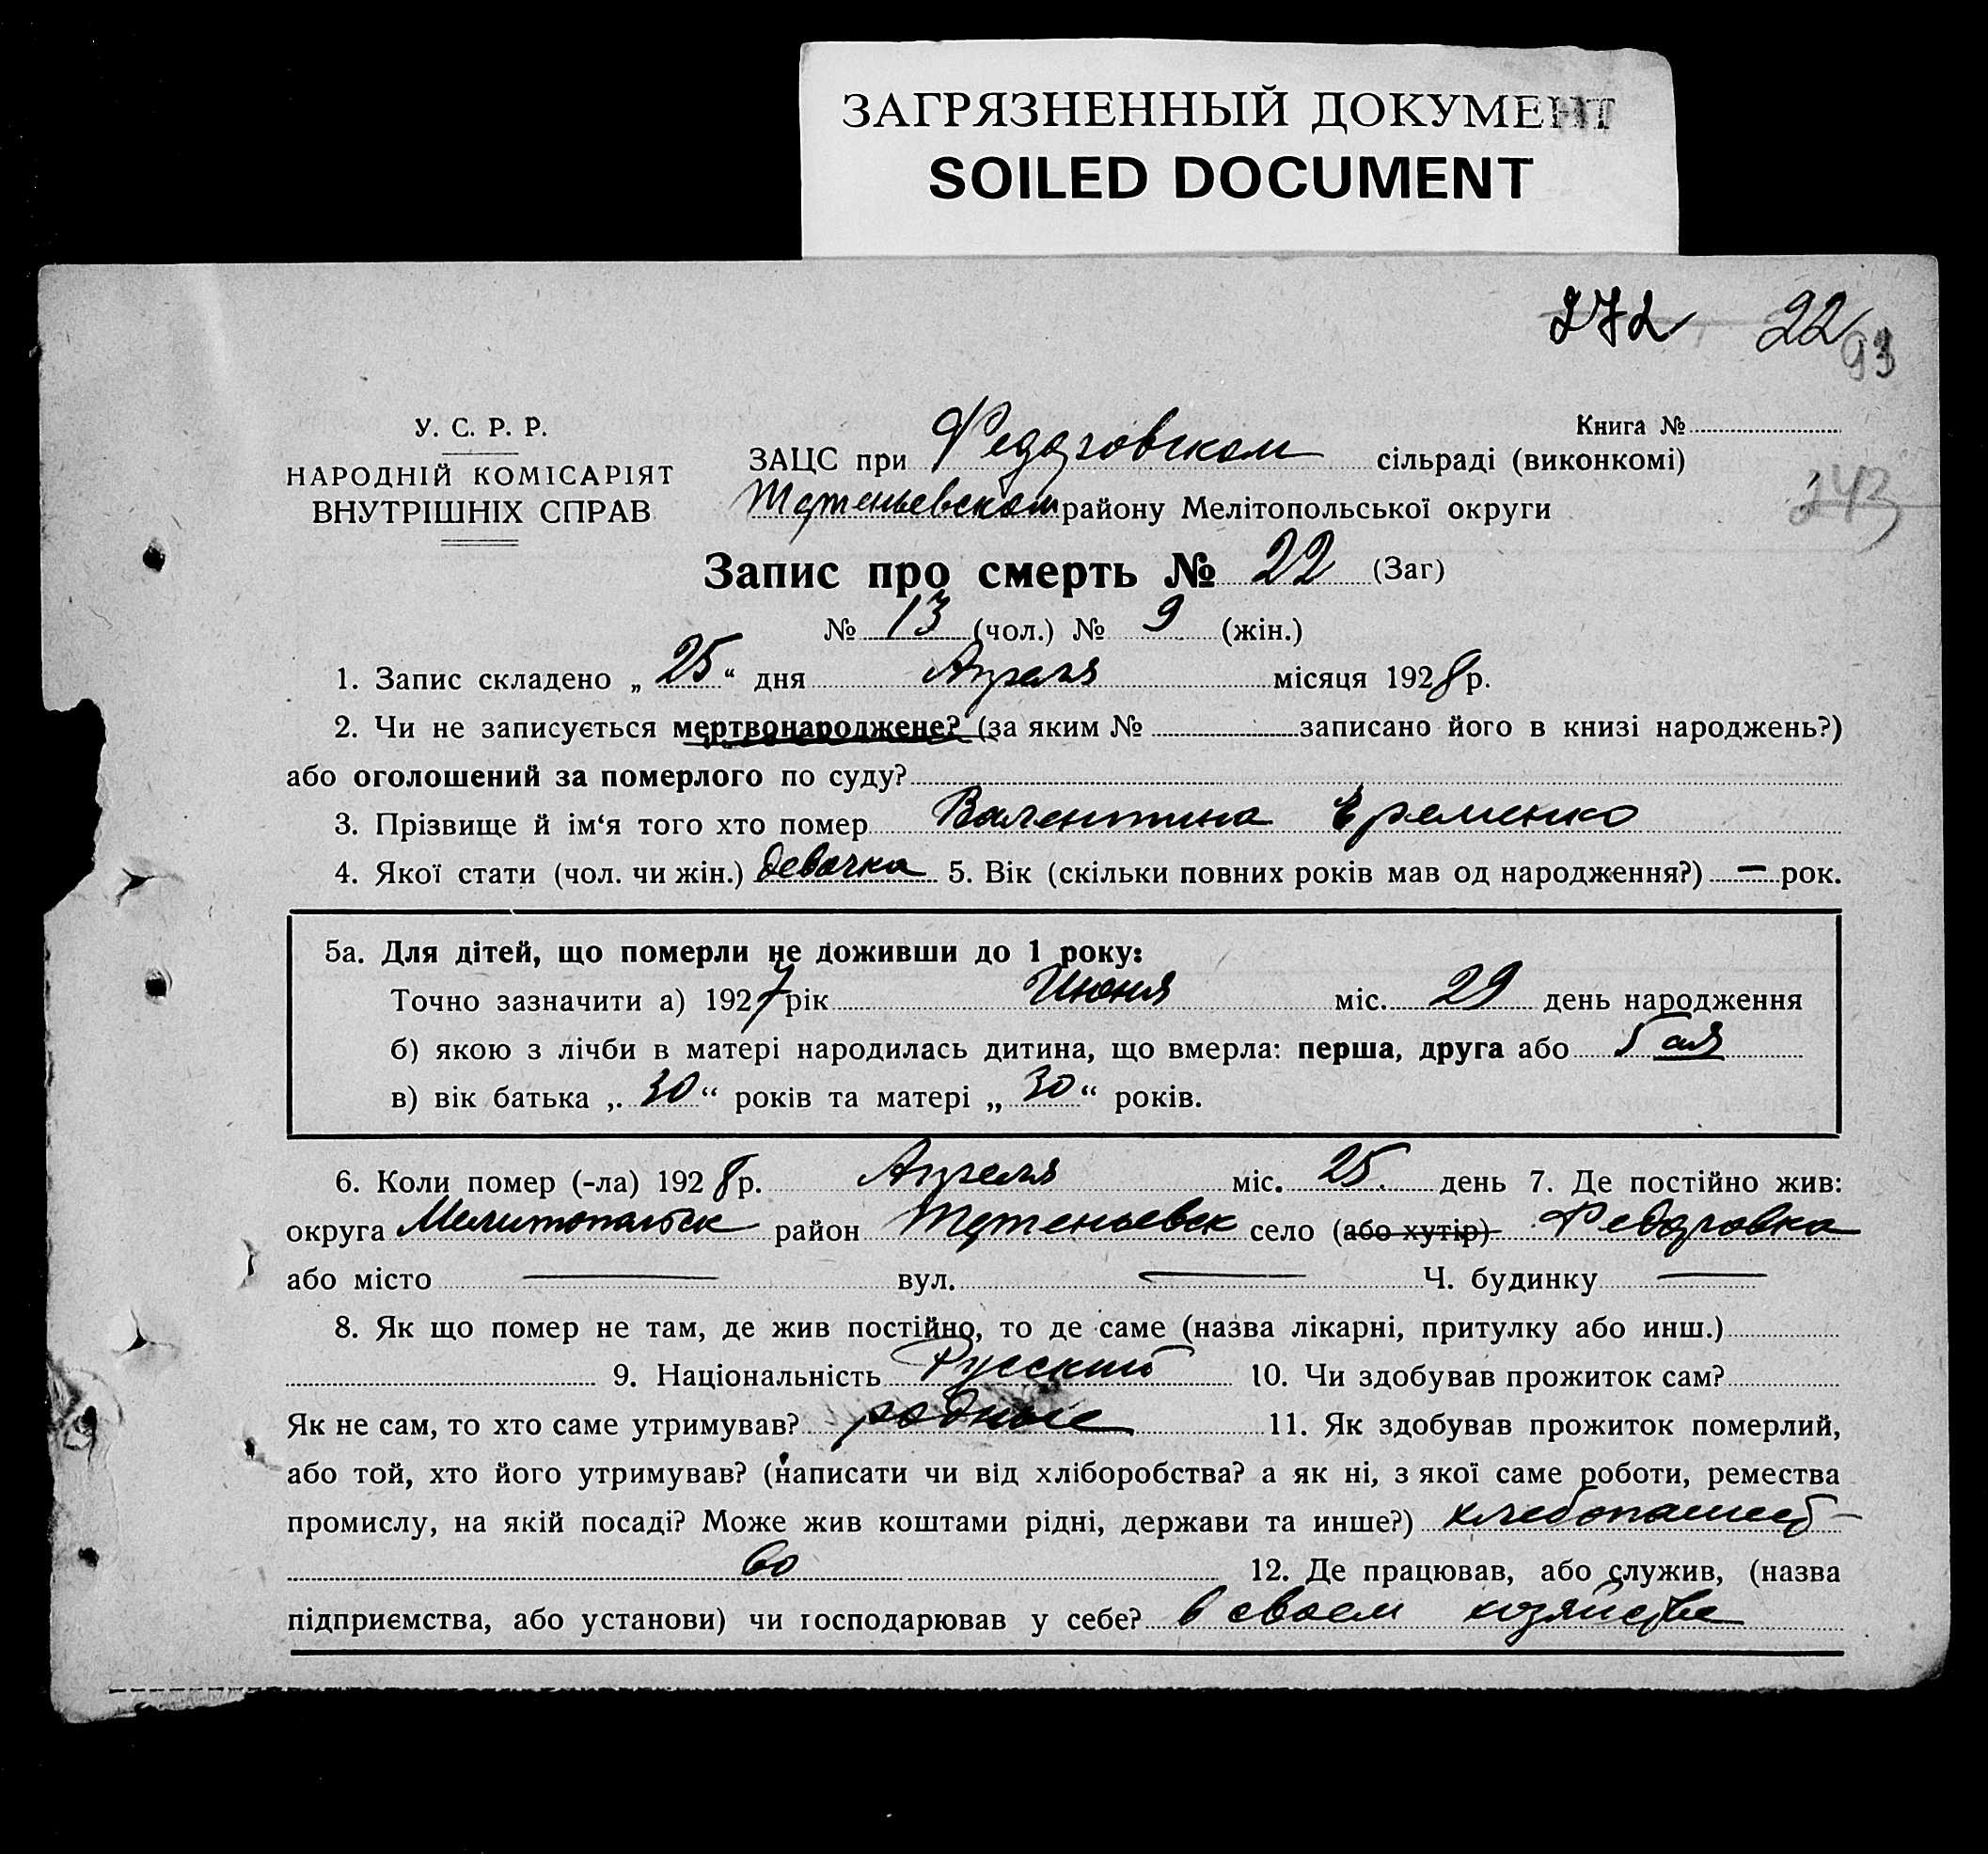 ЗАГРЯЗНЕННЫЙ ДОКУМЕНТ
SOILED DOCUMENT
272 22
93
У. С. Р. Р.
НАРОДНІЙ КОМІСАРІЯТ
ВНУТРІШНІХ СПРАВ
Книга №
ЗАЦС при Федоровском сільраді (виконкомі)
243
районy Мелітопольської округи
Запис про смерть № 22 (Заг)
№ 13 (чол.) № 9 (жін.)
1. Запис складено „ 25 “ дня Апреля місяця 1928 р.
2. Чи не записується мертвонароджене? (за яким № записано його в книзі народжень?)
або оголошений за померлого по суду?
3. Прізвище й ім‘я того хто помер Валентина Еременко
4. Якої стати (чол. чи жін.) девочка 5. Вік (скільки повних років мав од народження?) — рок.
5а. Для дітей, що померли не доживши до 1 року:
Точно зазначити а) 1927 рік Июня міс. 29 день народження
б) якою з лічби в матері народилась дитина, що вмерла: перша, друга або 5 ая
в) вік батька „ 30 “ років та матері „ 30 “ років.
6. Коли помер (-ла) 1928 р. Апреля міс. 25 день 7. Де постійно жив:
округа Мелитопольск район село (або хутір) Федоровка
або місто — вул. — Ч. будинку —
8. Як що помер не там, де жив постійно, то де саме (назва лікарні, притулку або инш.)
9. Національність Русский 10. Чи здобував прожиток сам?
Як не сам, то хто саме утримував? родные 11. Як здобував прожиток померлий,
або той, хто його утримував? (написати чи від хліборобства? а як ні, з якої саме роботи, ремества
промислу, на якій посаді? Може жив коштами рідні, держави та инше?) хлебопашест-
во 12. Де працював, або служив, (назва
підприємства, або установи) чи господарював у себе? в своем хозяйстве